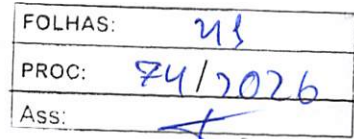 FOLHAS:
PROC: 74/2026
Ass: